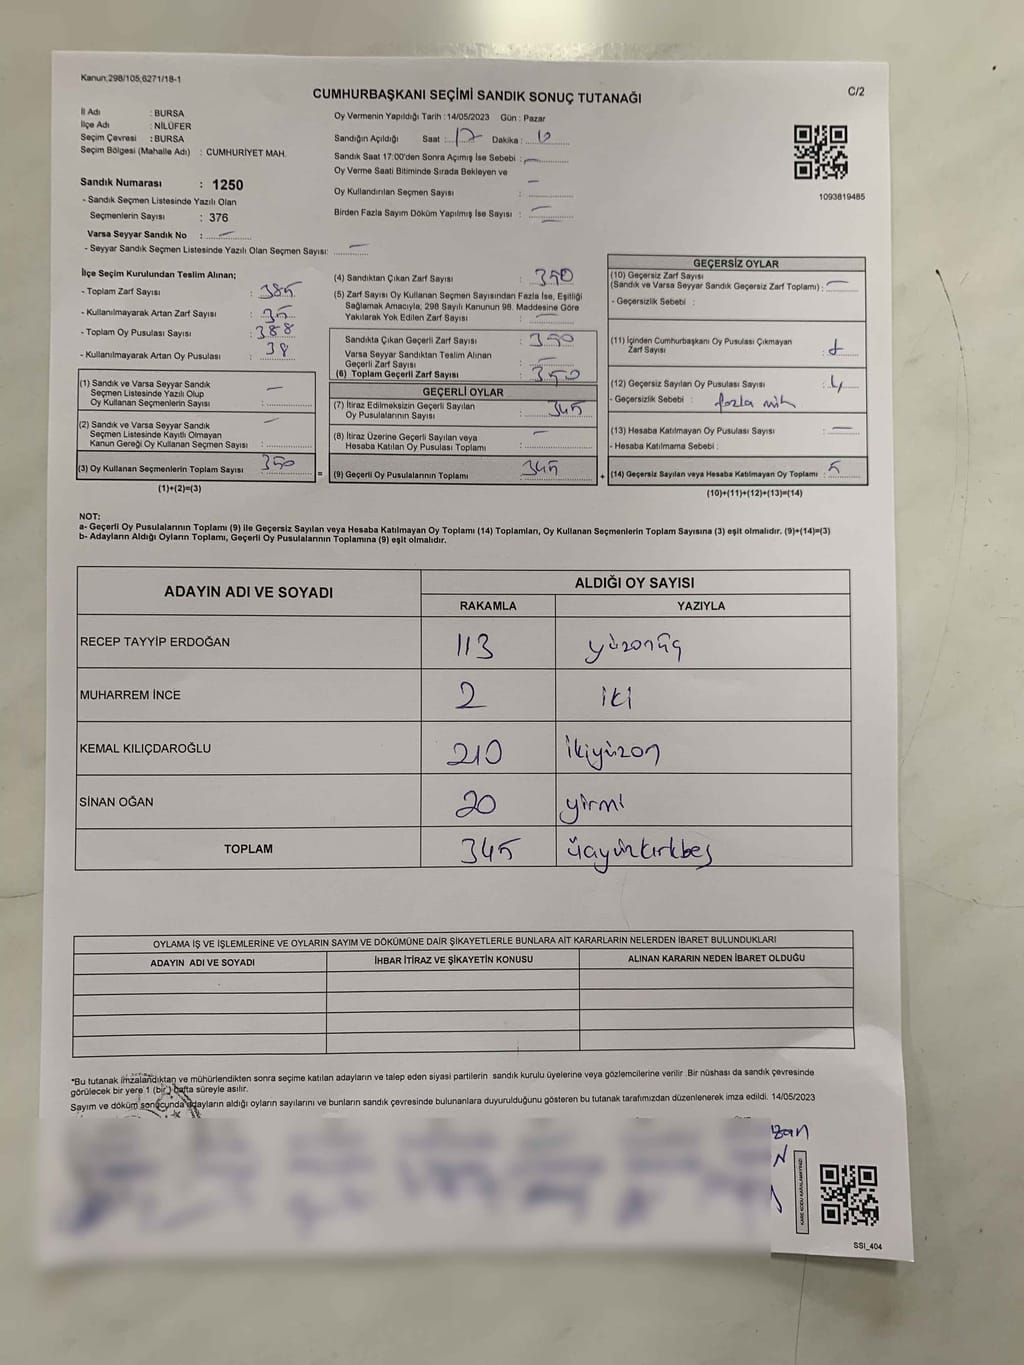 Kanun;298/105;6271/18-1
C/2
CUMHURBAŞKANI SEÇİMİ SANDIK SONUÇ TUTANAĞI
İl Adı : BURSA
İlçe Adı : NİLÜFER
Seçim Çevresi : BURSA
Seçim Bölgesi (Mahalle Adı) : CUMHURİYET MAH.
Sandık Numarası : 1250
- Sandık Seçmen Listesinde Yazılı Olan
Seçmenlerin Sayısı : 376
Varsa Seyyar Sandık No : —
- Seyyar Sandık Seçmen Listesinde Yazılı Olan Seçmen Sayısı: —
Oy Vermenin Yapıldığı Tarih : 14/05/2023 Gün : Pazar
Sandığın Açıldığı Saat : 17 Dakika : 10
Sandık Saat 17:00'den Sonra Açımış İse Sebebi : —
Oy Verme Saati Bitiminde Sırada Bekleyen ve
Oy Kullandırılan Seçmen Sayısı : —
Birden Fazla Sayım Döküm Yapılmış İse Sayısı : —
1093819485
İlçe Seçim Kurulundan Teslim Alınan;
- Toplam Zarf Sayısı : 385
- Kullanılmayarak Artan Zarf Sayısı : 35
- Toplam Oy Pusulası Sayısı : 388
- Kullanılmayarak Artan Oy Pusulası : 38
(1) Sandık ve Varsa Seyyar Sandık
Seçmen Listesinde Yazılı Olup
Oy Kullanan Seçmenlerin Sayısı : —
(2) Sandık ve Varsa Seyyar Sandık
Seçmen Listesinde Kayıtlı Olmayan
Kanun Gereği Oy Kullanan Seçmen Sayısı : —
(3) Oy Kullanan Seçmenlerin Toplam Sayısı : 350
(1)+(2)=(3)
(4) Sandıktan Çıkan Zarf Sayısı : 350
(5) Zarf Sayısı Oy Kullanan Seçmen Sayısından Fazla İse, Eşitliği
Sağlamak Amacıyla, 298 Sayılı Kanunun 98. Maddesine Göre
Yakılarak Yok Edilen Zarf Sayısı : —
Sandıkta Çıkan Geçerli Zarf Sayısı : 350
Varsa Seyyar Sandıktan Teslim Alınan
Geçerli Zarf Sayısı : —
(6) Toplam Geçerli Zarf Sayısı : 350
GEÇERLİ OYLAR
(7) İtiraz Edilmeksizin Geçerli Sayılan
Oy Pusulalarının Sayısı : 345
(8) İtiraz Üzerine Geçerli Sayılan veya
Hesaba Katılan Oy Pusulaları Toplamı : —
=
(9) Geçerli Oy Pusulalarının Toplamı : 345
GEÇERSİZ OYLAR
(10) Geçersiz Zarf Sayısı
(Sandık ve Varsa Seyyar Sandık Geçersiz Zarf Toplamı) : —
- Geçersizlik Sebebi :
(11) İçinden Cumhurbaşkanı Oy Pusulası Çıkmayan
Zarf Sayısı : 1
(12) Geçersiz Sayılan Oy Pusulası Sayısı : 4
- Geçersizlik Sebebi : fazla
(13) Hesaba Katılmayan Oy Pusulası Sayısı : —
- Hesaba Katılmama Sebebi :
+ (14) Geçersiz Sayılan veya Hesaba Katılmayan Oy Toplamı : 5
(10)+(11)+(12)+(13)=(14)
NOT:
a- Geçerli Oy Pusulalarının Toplamı (9) ile Geçersiz Sayılan veya Hesaba Katılmayan Oy Toplamı (14) Toplamları, Oy Kullanan Seçmenlerin Toplam Sayısına (3) eşit olmalıdır. (9)+(14)=(3)
b- Adayların Aldığı Oyların Toplamı, Geçerli Oy Pusulalarının Toplamına (9) eşit olmalıdır.
ADAYIN ADI VE SOYADI
ALDIĞI OY SAYISI
RAKAMLA YAZIYLA
RECEP TAYYİP ERDOĞAN 113 yüzonüç
MUHARREM İNCE 2 iki
KEMAL KILIÇDAROĞLU 210 ikiyüzon
SİNAN OĞAN 20 yirmi
TOPLAM 345 üçyüzkırkbeş
OYLAMA İŞ VE İŞLEMLERİNE VE OYLARIN SAYIM VE DÖKÜMÜNE DAİR ŞİKAYETLERLE BUNLARA AİT KARARLARIN NELERDEN İBARET BULUNDUKLARI
ADAYIN ADI VE SOYADI İHBAR İTİRAZ VE ŞİKAYETİN KONUSU ALINAN KARARIN NEDEN İBARET OLDUĞU
*Bu tutanak imzalandıktan ve mühürlendikten sonra seçime katılan adayların ve talep eden siyasi partilerin sandık kurulu üyelerine veya gözlemcilerine verilir. Bir nüshası da sandık çevresinde
görülecek bir yere 1 (bir) hafta süreyle asılır.
Sayım ve döküm sonucunda adayların aldığı oyların sayılarını ve bunların sandık çevresinde bulunanlara duyurulduğunu gösteren bu tutanak tarafımızdan düzenlenerek imza edildi. 14/05/2023
KARE KODU KARALAMAYINIZ!
SSI_404